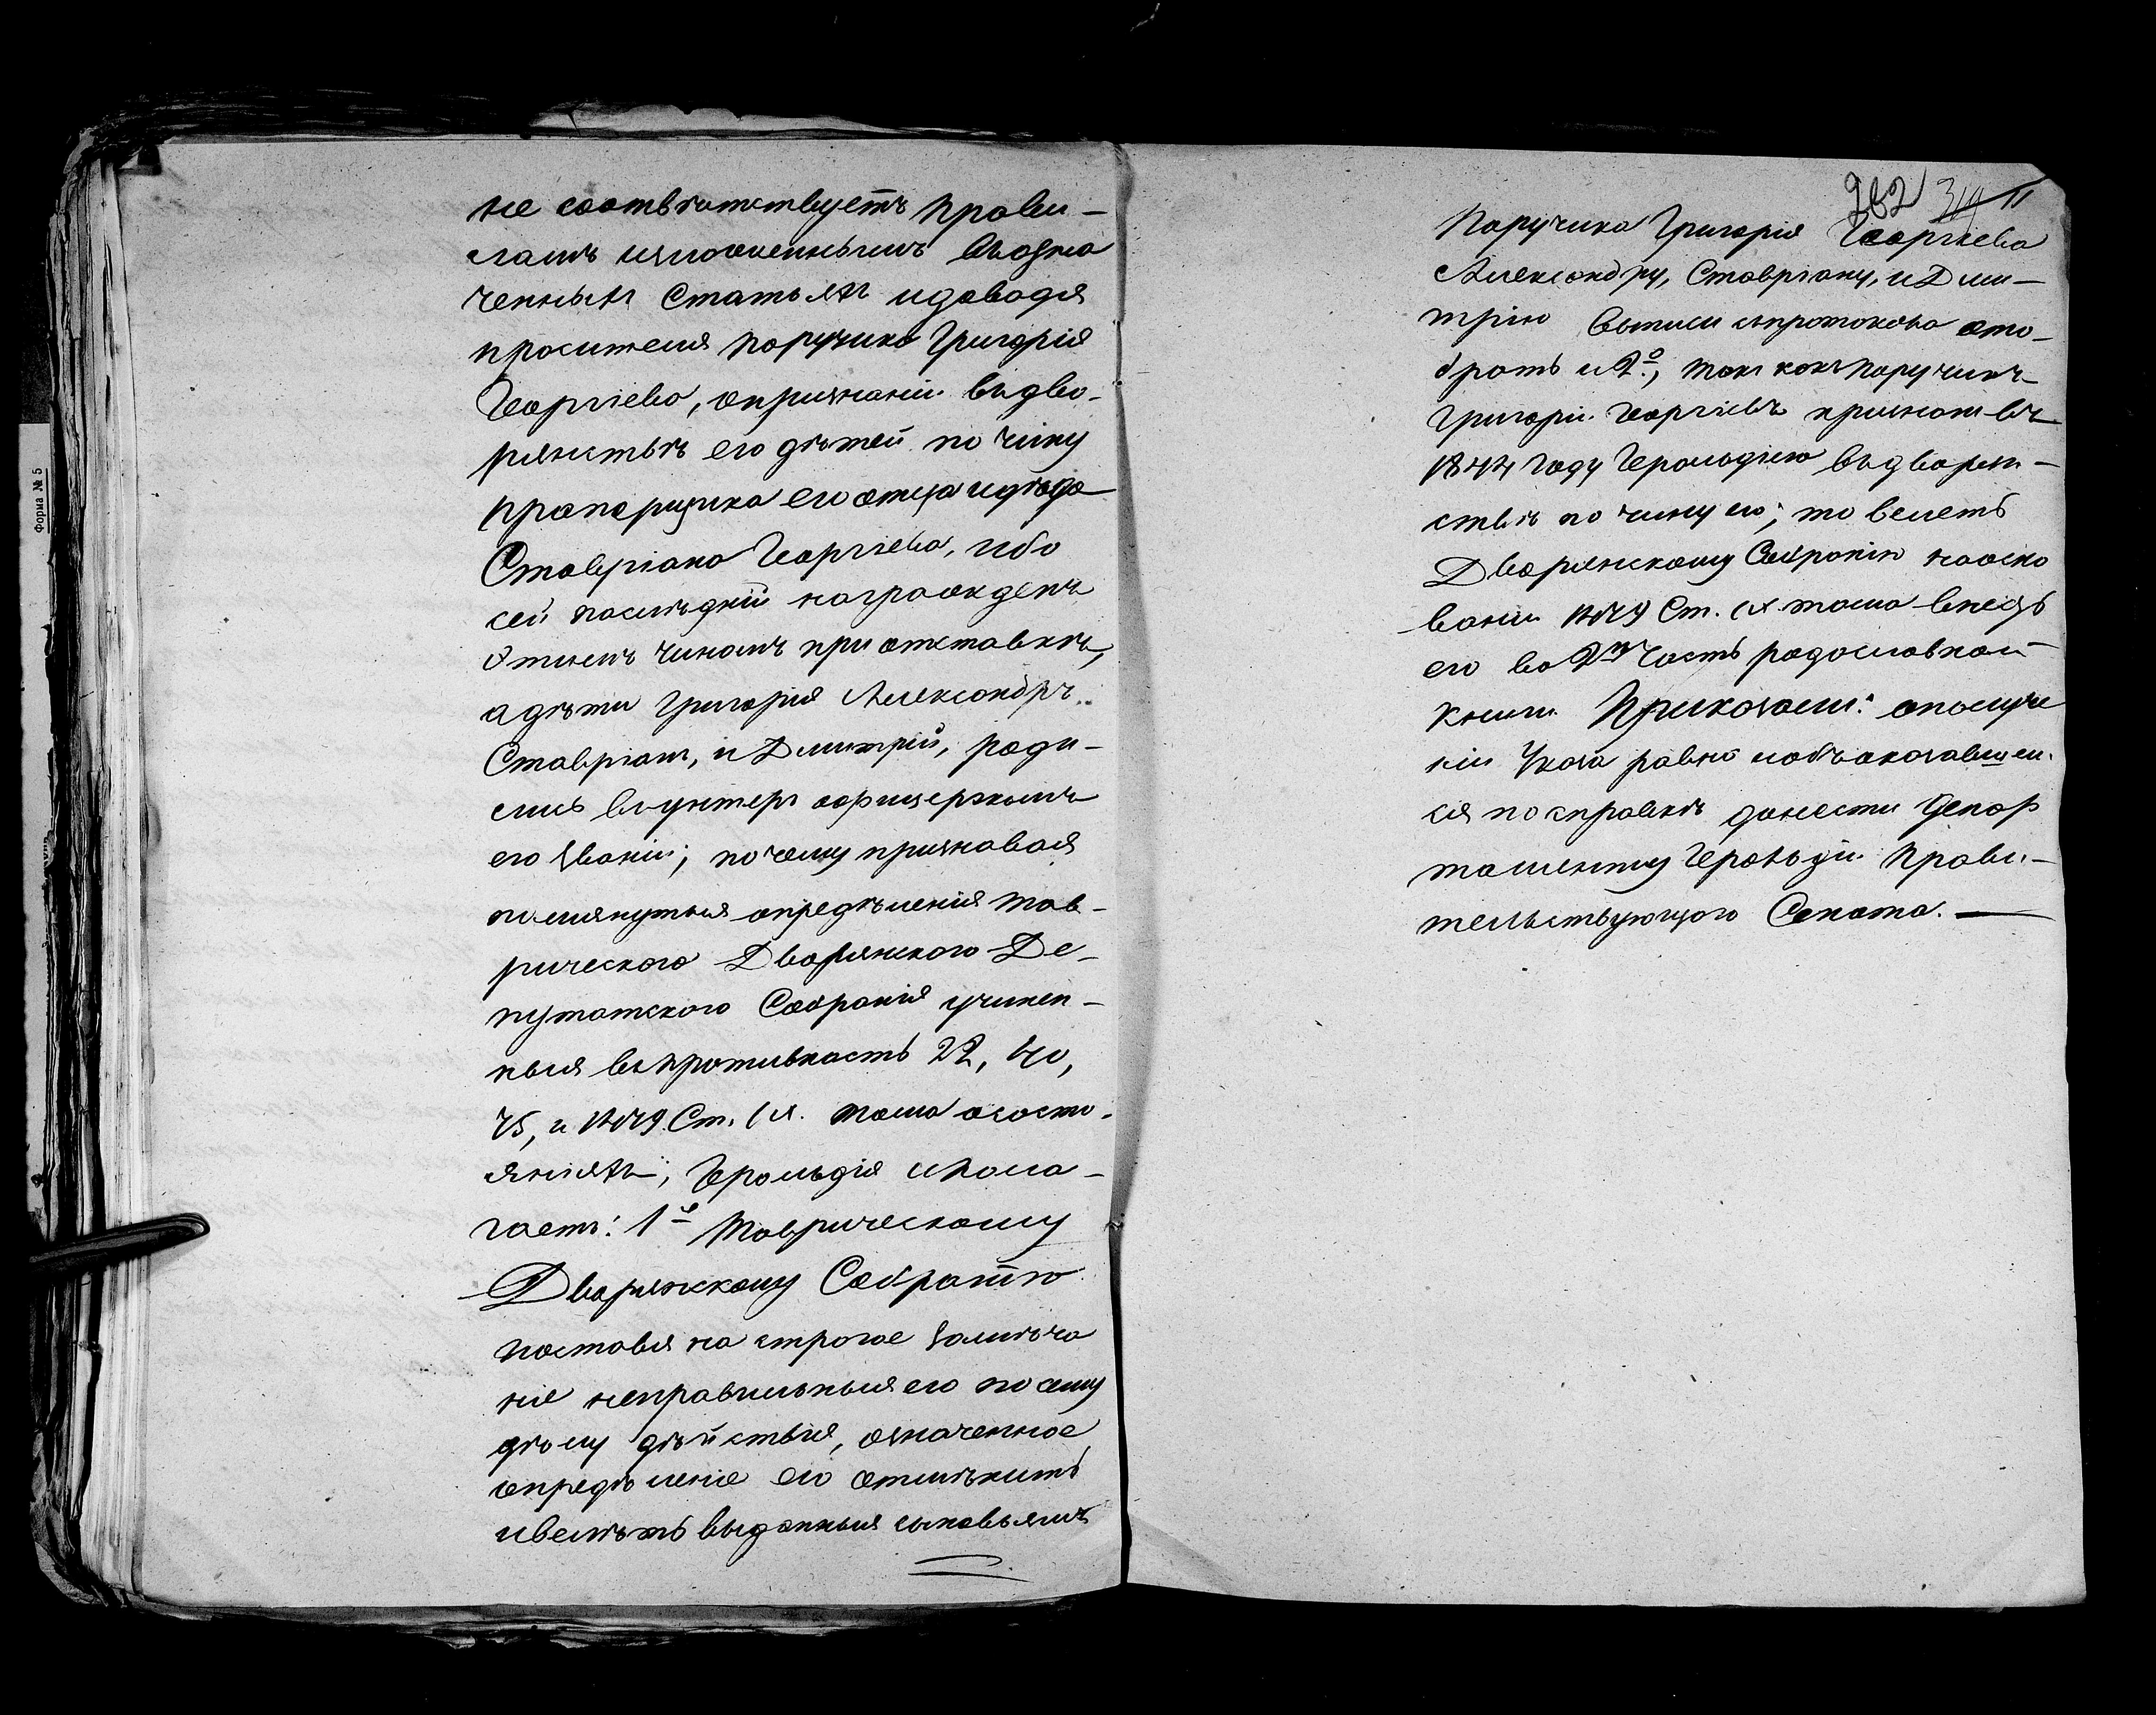 не соотвѣтствуетъ прави-
ламъ изложеннымъ въозна
ченныхъ статьяхъ и доводя
просителя поручика Григорія
Георгіева, опризнаніи въдво-
рянствѣ его дѣтей по чину
прапорщика его отца идѣда
Ставріана Георгіева, ибо
сей послѣдній награжденъ
этимъ чиномъ при отставкѣ,
адѣти Григорія Александръ
Ставріанъ, и Дмитрій, роди-
лись въунтеръ офицерскомъ
его званіи; почему признавая
помянутыя опредѣленія Тав-
рическаго Дворянскаго Де-
путатскаго Собранія учинен-
ныя въпротивность 22, 40,
Ст. IX. тома ососто-
яніяхъ, Герольдія пола-
гаетъ: 1е Таврическому
Дворянскому Собранію
поставя на строгое замѣча
ніе неправильныя его по сему
дѣлу дѣйствія, означенное
опредѣленіе его отмѣнить
ивелѣть выданныя сыновьямъ
262 314 11
Поручика Григорія Георгіева
Александру, Ставріану, и Дми-
трію выписи съпротокола ото-
брать и 2о, такъ какъ поручикъ
Григорій Георгіевъ признанъ въ
1844 году Герольдіею въдворян-
ствѣ по чину его; то велеть
Дворянскому Собранію наосно
ваніи Ст. IX тома внесть
его во 2ю часть родословной
книги. Приказали: ополуче
ніи Указа равно иобъоказавшем-
ся посправкѣ донести Депар
таменту Герольдіи Прави-
тельствующаго Сената.
Форма № 5